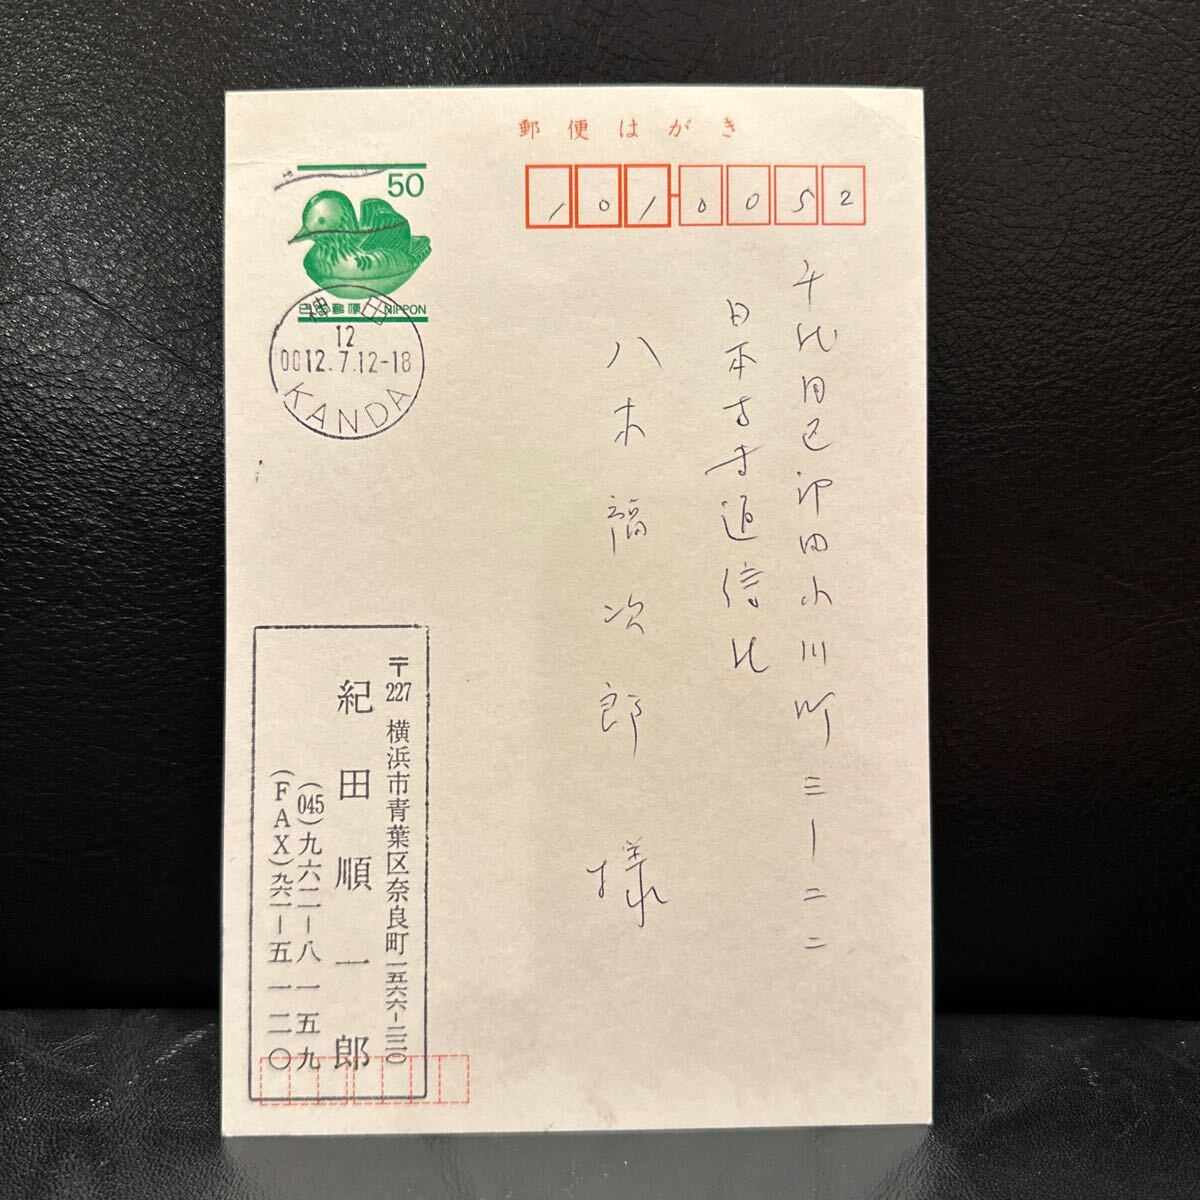 郵便はがき
50
日本郵便 NIPPON
神田
12
0012.7.12-18
KANDA
101-0052
千代田区神田小川町三ー二二
日本古書通信社
八木福次郎様
〒227 横浜市青葉区奈良町一五六六-二二〇
紀田順一郎
(045)九六二-八一五九
(FAX)九六一-五一二〇